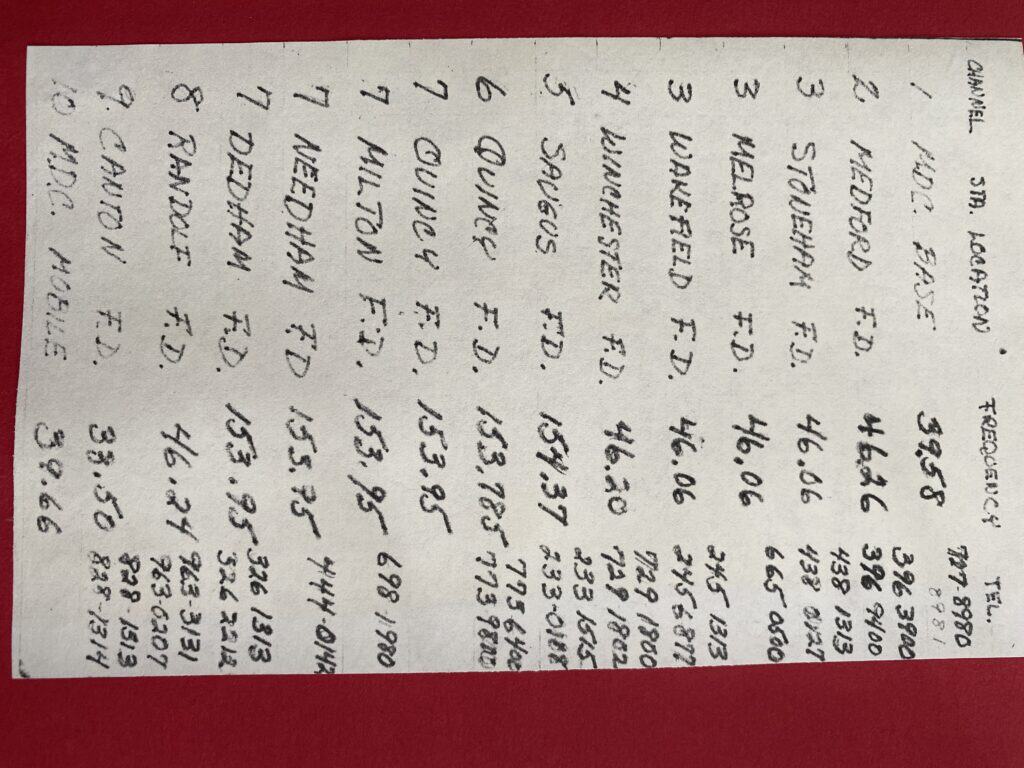 CHANNEL STA. LOCATION FREQUENCY TEL..
1 MDC. BASE 39.58 727-8980
8981
396 3900
2 MEDFORD F.D. 46.26 396 9400
438 1313
3 STONEHAM F.D. 46.06 438 0127
3 MELROSE F.D. 46.06 665 0500
245 1313
3 WAKEFIELD F.D. 46.06 245 6877
729 1800
4 WINCHESTER F.D. 46.20 729 1802
233 1575
5 SAUGUS F.D. 154.37 233-0188
773 6400
6 QUINCY F.D. 153.785 773 9800
7 QUINCY F.D. 153.95
7 MILTON F.D. 153.95 698-1980
7 NEEDHAM F.D 153.95 444-0142
326 1313
7 DEDHAM F.D. 153.95 326 2212
963-3131
8 RANDOLF F.D. 46.24 963-0207
828-1313
9 CANTON F.D. 33.50 828-1314
10 M.D.C. MOBILE 39.66